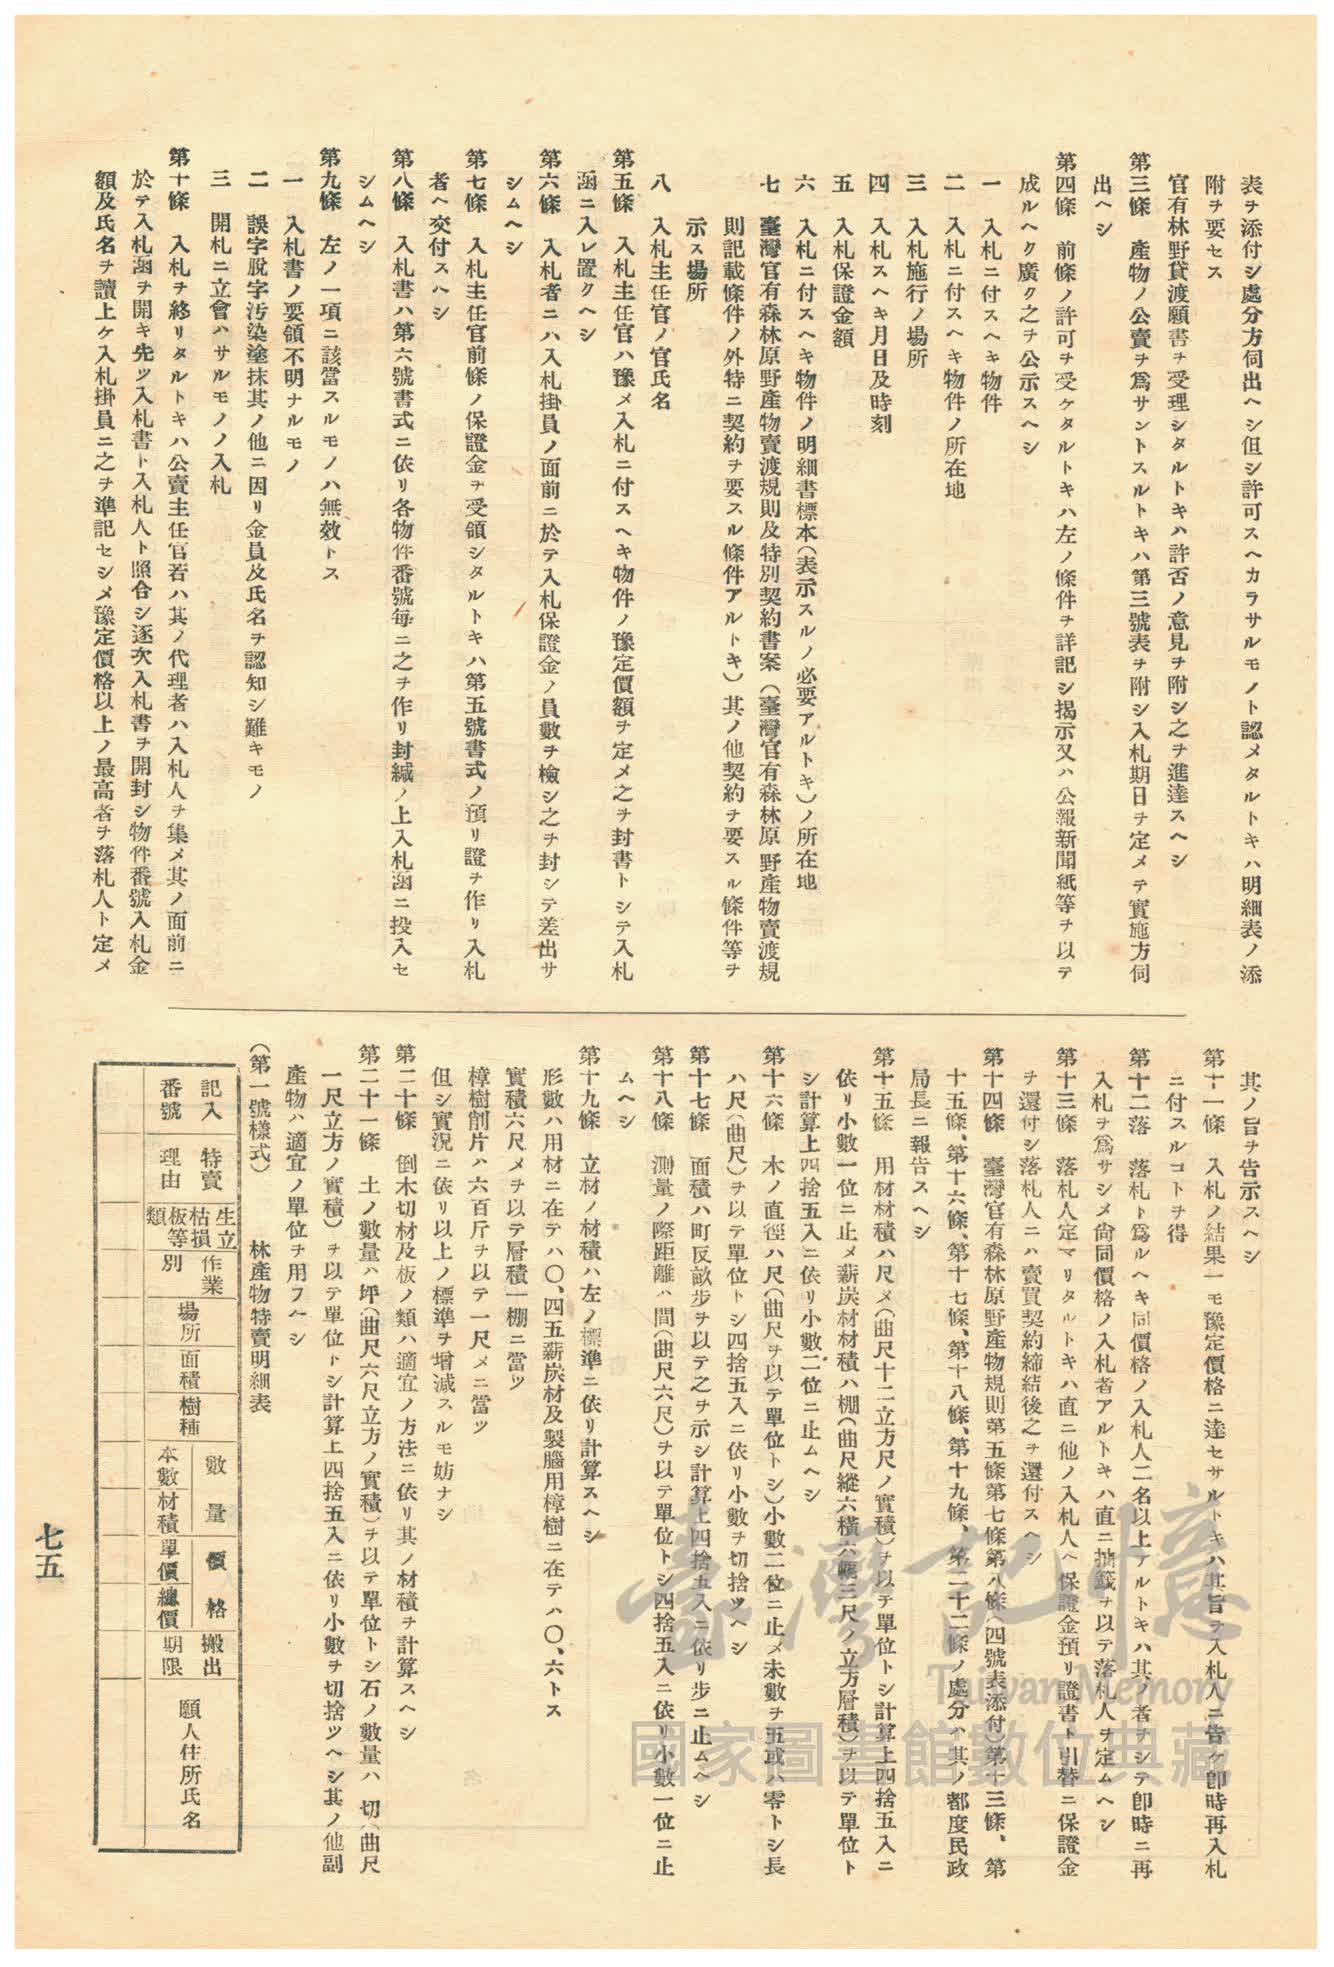 表ヲ添付シ處分方伺出ヘシ但シ許可スヘカラサルモノト認メタルトキハ明細表ノ添
附ヲ要セス
官有林野貸渡願書ヲ受理シタルトキハ許否ノ意見ヲ附シ之ヲ進達スヘシ
第三條　產物ノ公賣ヲ爲サントスルトキハ第三號表ヲ附シ入札期日ヲ定メテ實施方伺
出ヘシ
第四條　前條ノ許可ヲ受ケタルトキハ左ノ條件ヲ詳記シ揭示又ハ公報新聞紙等ヲ以テ
成ルヘク廣ク之ヲ公示スヘシ
一　入札ニ付スヘキ物件
二　入札ニ付スヘキ物件ノ所在地
三　入札施行ノ場所
四　入札スヘキ月日及時刻
五　入札保證金額
六　入札ニ付スヘキ物件ノ明細書標本（表示スルノ必要アルトキ）ノ所在地
七　臺灣官有森林原野產物賣渡規則及特別契約書案（臺灣官有森林原野產物賣渡規
則記載條件ノ外特ニ契約ヲ要スル條件アルトキ）其ノ他契約ヲ要スル條件等ヲ
示ス場所
八　入札主任官ノ官氏名
第五條　入札主任官ハ豫メ入札ニ付スヘキ物件ノ豫定價額ヲ定メ之ヲ封書トシテ入札
函ニ入レ置クヘシ
第六條　入札者ニハ入札掛員ノ面前ニ於テ入札保證金ノ員數ヲ檢シ之ヲ封シテ差出サ
シムヘシ
第七條　入札主任官前條ノ保證金ヲ受領シタルトキハ第五號書式ノ預リ證ヲ作リ入札
者ヘ交付スハシ
第八條　入札書ハ第六號書式ニ依リ各物件番號每ニ之ヲ作リ封緘ノ上入札函ニ投入セ
シムヘシ
第九條　左ノ一項ニ該當スルモノハ無效トス
一　入札書ノ要領不明ナルモノ
二　誤字脫字汚染塗抹其ノ他ニ因リ金員及氏名ヲ認知シ難キモノ
三　開札ニ立會ハサルモノノ入札
第十條　入札ヲ終リタルトキハ公賣主任官若ハ其ノ代理者ハ入札人ヲ集メ其ノ面前ニ
於テ入札函ヲ開キ先ツ入札書ト入札人ト照合シ逐次入札書ヲ開封シ物件番號入札金
額及氏名ヲ讀上ケ入札掛員ニ之ヲ準記セシメ豫定價格以上ノ最高者ヲ落札人ト定メ
其ノ旨ヲ告示スヘシ
第十一條　入札ノ結果一モ豫定價格ニ達セサルトキハ其旨ヲ入札人ニ告ケ卽時再入札
ニ付スルコトヲ得
第十二落　落札ト爲ルヘキ同價格ノ入札人二名以上アルトキハ其ノ者ヲシテ卽時ニ再
入札ヲ爲サシメ尙同價格ノ入札者アルトキハ直ニ抽籤ヲ以テ落札人ヲ定ムヘシ
第十三條　落札人定マリタルトキハ直ニ他ノ入札人ヘ保證金預リ證書ト引替ニ保證金
ヲ還付シ落札人ニハ賣買契約締結後之ヲ還付スヘシ
第十四條　臺灣官有森林原野產物規則第五條第七條第八條（四號表添付）第十三條、第
十五條、第十六條、第十七條、第十八條、第十九條、第二十二條ノ處分ハ其ノ都度民政
局長ニ報告スヘシ
第十五條　用材材積ハ尺メ（曲尺十二立方尺ノ實積）ヲ以テ單位トシ計算上四捨五入ニ
依リ小數一位ニ止メ薪炭材材積ハ棚（曲尺縱六橫六幅三尺ノ立方層積）ヲ以テ單位ト
シ計算上四捨五入ニ依リ小數二位ニ止ムヘシ
第十六條　木ノ直徑ハ尺（曲尺ヲ以テ單位トシ）小數二位ニ止メ未數ヲ五或ハ零トシ長
ハ尺（曲尺）ヲ以テ單位トシ四捨五入ニ依リ小數ヲ切捨ツヘシ
第十七條　面積ハ町反畝步ヲ以テ之ヲ示シ計算上四捨五入ニ依リ步ニ止ムヘシ
第十八條　測量ノ際距離ハ間（曲尺六尺）ヲ以テ單位トシ四捨五入ニ依リ小數一位ニ止
ムヘシ
第十九條　立材ノ材積ハ左ノ標準ニ依リ計算スヘシ
形數ハ用材ニ在テハ〇、四五薪炭材及製腦用樟樹ニ在テハ〇、六トス
實積六尺メヲ以テ層積一棚ニ當ツ
樟樹削片ハ六百斤ヲ以テ一尺メニ當ツ
但シ實況ニ依リ以上ノ標準ヲ增減スルモ妨ナシ
第二十條　倒木切材及板ノ類ハ適宜ノ方法ニ依リ其ノ材積ヲ計算スヘシ
第二十一條　土ノ數量ハ坪（曲尺六尺立方ノ實積）ヲ以テ單位トシ石ノ數量ハ切（曲尺
一尺立方ノ實積）ヲ以テ單位トシ計算上四捨五入ニ依リ小數ヲ切捨ツヘシ其ノ他副
產物ハ適宜ノ單位ヲ用フヘシ
（第一號樣式）　林產物特賣明細表
記入番號
特賣理由
生立枯損板等類
作業別
場所
面積
樹種
數量
本數
材積
價格
單價
總價
搬出期限
願人住所氏名
七五
臺灣記憶
Taiwan Memory
國家圖書館數位典藏